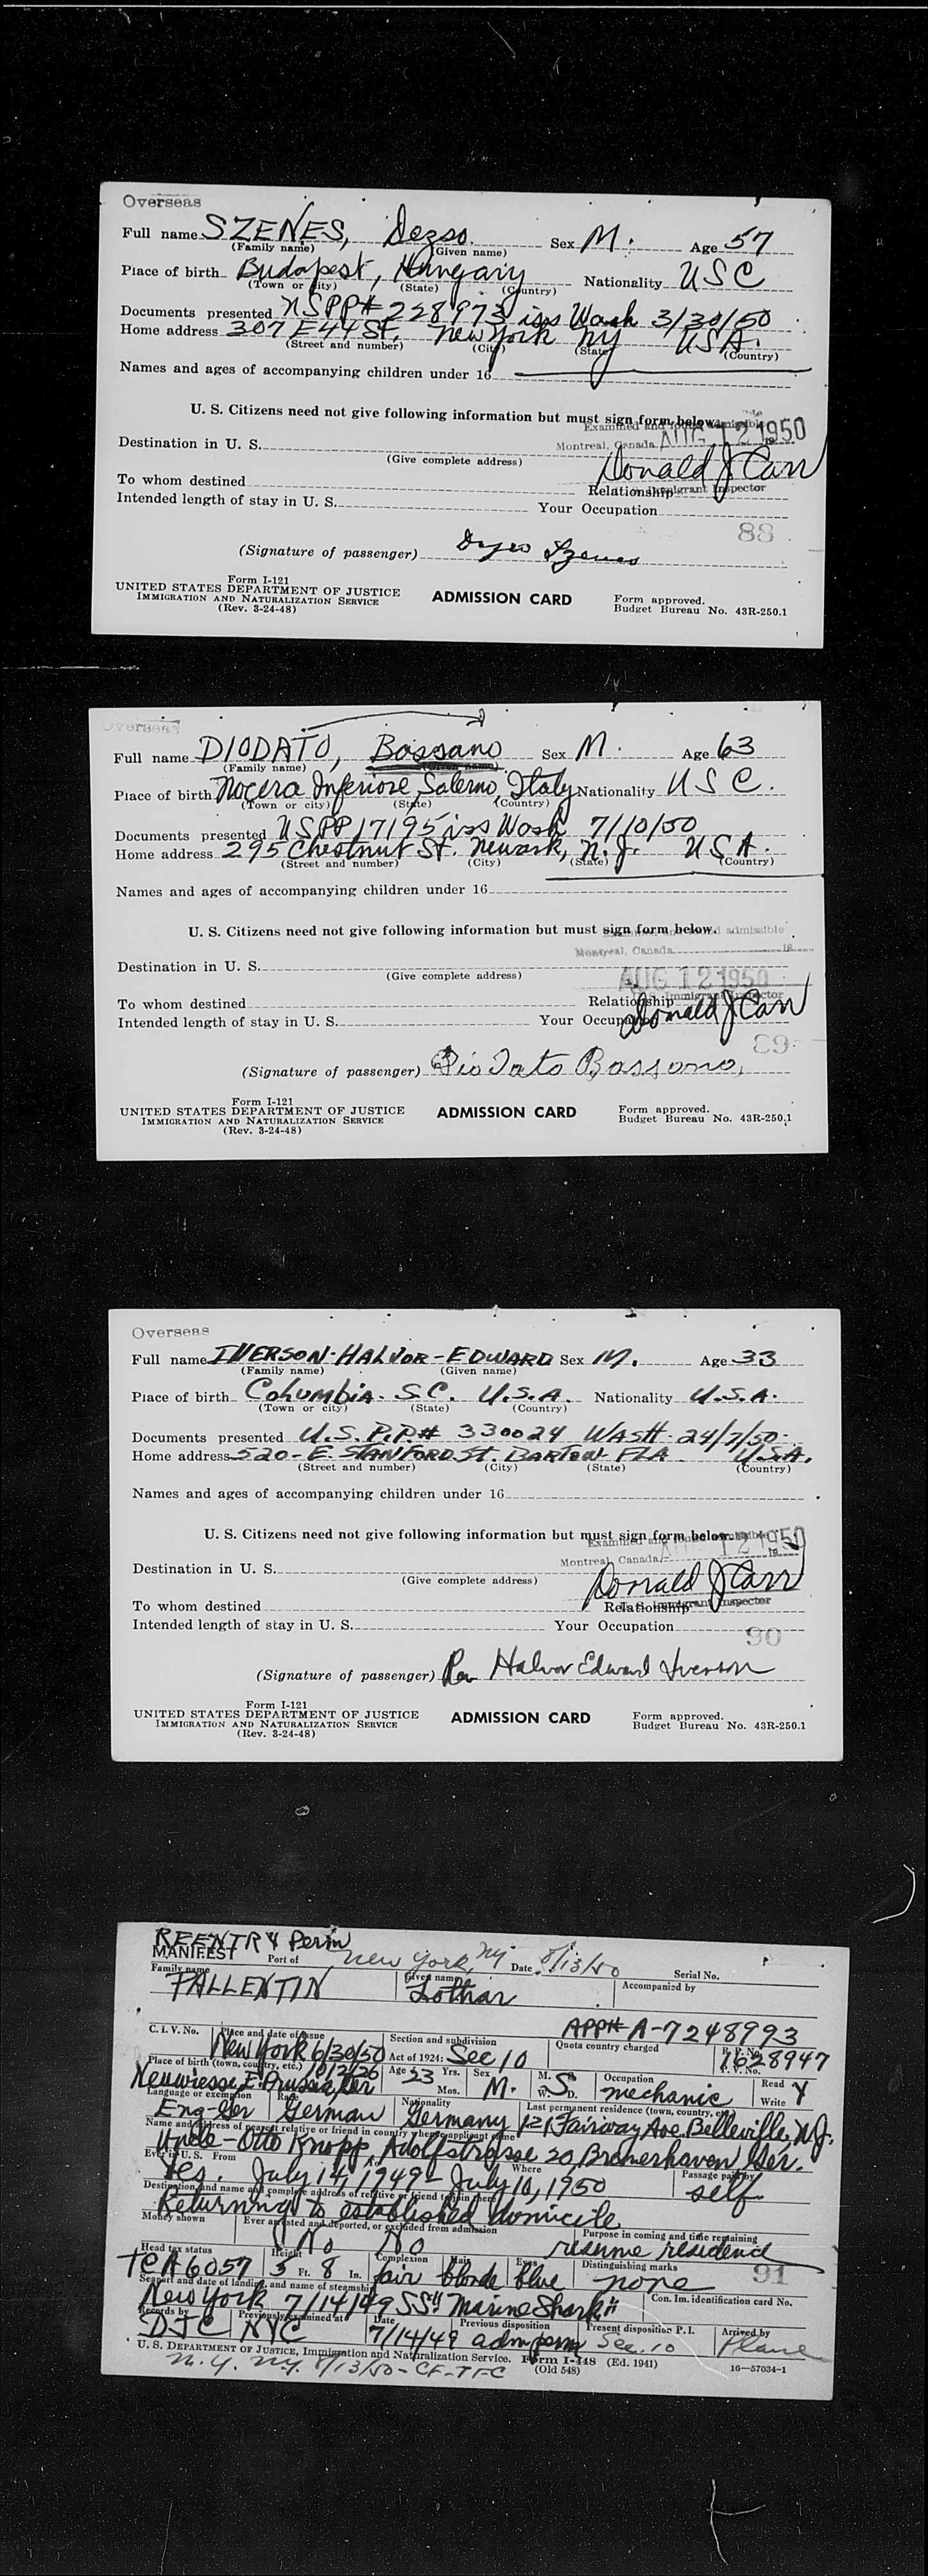 Overseas
Full name SZENES, Dezso. Sex M. Age 57
(Family name) (Given name)
Place of birth Budapest, Hungary Nationality USC
(Town or city) (State) (Country)
Documents presented USPP# 228973 iss Wash 3/30/50
Home address 307 E 44 St. New York NY USA.
(Street and number) (City) (State) (Country)
Names and ages of accompanying children under 16
U. S. Citizens need not give following information but must sign form below.
Examined and found admissible
Destination in U. S. Montreal, Canada AUG 12 1950
(Give complete address) Donald J Carr
To whom destined Relationship Immigrant Inspector
Intended length of stay in U. S. Your Occupation
88
(Signature of passenger) Dezso Szenes
Form I-121
UNITED STATES DEPARTMENT OF JUSTICE
IMMIGRATION AND NATURALIZATION SERVICE ADMISSION CARD Form approved.
(Rev. 3-24-48) Budget Bureau No. 43R-250.1
Overseas
Full name DIODATO, Bassano Sex M. Age 63
(Family name) (Given name)
Place of birth Nocera Inferiore, Salerno, Italy Nationality USC.
(Town or city) (State) (Country)
Documents presented USPP 17195 iss Wash 7/10/50
Home address 295 Chestnut St. Newark, N.J. USA.
(Street and number) (City) (State) (Country)
Names and ages of accompanying children under 16
U. S. Citizens need not give following information but must sign form below. admissible
Montreal, Canada 19
Destination in U. S.
(Give complete address) AUG 12 1950
To whom destined Relationship Immigrant Inspector
Intended length of stay in U. S. Your Occupation Donald J Carr
89
(Signature of passenger) DioDato Bassano,
Form I-121
UNITED STATES DEPARTMENT OF JUSTICE
IMMIGRATION AND NATURALIZATION SERVICE ADMISSION CARD Form approved.
(Rev. 3-24-48) Budget Bureau No. 43R-250.1
Overseas
Full name IVERSON-HALVOR-EDWARD Sex M. Age 33
(Family name) (Given name)
Place of birth Columbia. S.C. U.S.A. Nationality U.S.A.
(Town or city) (State) (Country)
Documents presented U.S.P.P.# 330024 WASH 24/7/50
Home address 520-E. STANFORD. ST. BARTOW FLA U.S.A.
(Street and number) (City) (State) (Country)
Names and ages of accompanying children under 16
U. S. Citizens need not give following information but must sign form below.
Examined and found admissible
Destination in U. S. Montreal, Canada AUG 12 1950
(Give complete address) Donald J Carr
To whom destined Relationship Immigrant Inspector
Intended length of stay in U. S. Your Occupation
90
(Signature of passenger) Rev Halvor Edward Iverson
Form I-121
UNITED STATES DEPARTMENT OF JUSTICE
IMMIGRATION AND NATURALIZATION SERVICE ADMISSION CARD Form approved.
(Rev. 3-24-48) Budget Bureau No. 43R-250.1
REENTRY Perm
MANIFEST Port of New York, NY Date 8/13/50 Serial No.
Family name FALLENTIN Given name Lothar Accompanied by
APP# A-7248993
C. I. V. No. Place and date of issue New York 6/30/50 Section and subdivision Act of 1924: Sec 10 Quota country charged R. P. No. 1628947
Place of birth (town, country, etc.) 10/2/26 Neuwiese E. Prussia, Ger Age 23 Yrs. Mos. Sex M. M. S W. D. Occupation mechanic Read Write Y
Language or exemption Eng-Ger Race German Nationality Germany Last permanent residence (town, country, etc.) 121 Fairway Ave Belleville, N.J.
Name and address of nearest relative or friend in country whence applicant came
Uncle-Otto Knopp, Adolfstrasse 20, Bremerhaven Ger.
Ever in U. S. From Where Passage paid by
Yes. July 14, 1949 - July 10, 1950 self
Destination and name and complete address of relative or friend to join there
Returning to established domicile
Money shown Ever arrested and deported, or excluded from admission Purpose in coming and time remaining
No No resume residence
Head tax status Height Complexion Hair Eyes Distinguishing marks 91
TCA 6057 5 Ft. 8 In. fair blonde blue none
Seaport and date of landing, and name of steamship Con. Im. identification card No.
New York 7/14/49 SS "Marine Shark"
Records by Previously examined at Date Previous disposition Present disposition P. I. Arrived by
DJC NYC 7/14/49 adm perm Sec. 10 Plane
U. S. DEPARTMENT OF JUSTICE, Immigration and Naturalization Service. Form I-448 (Ed. 1941)
(Old 548) 16—57034-1
N.Y. NY. 8/13/50-CF-TFC